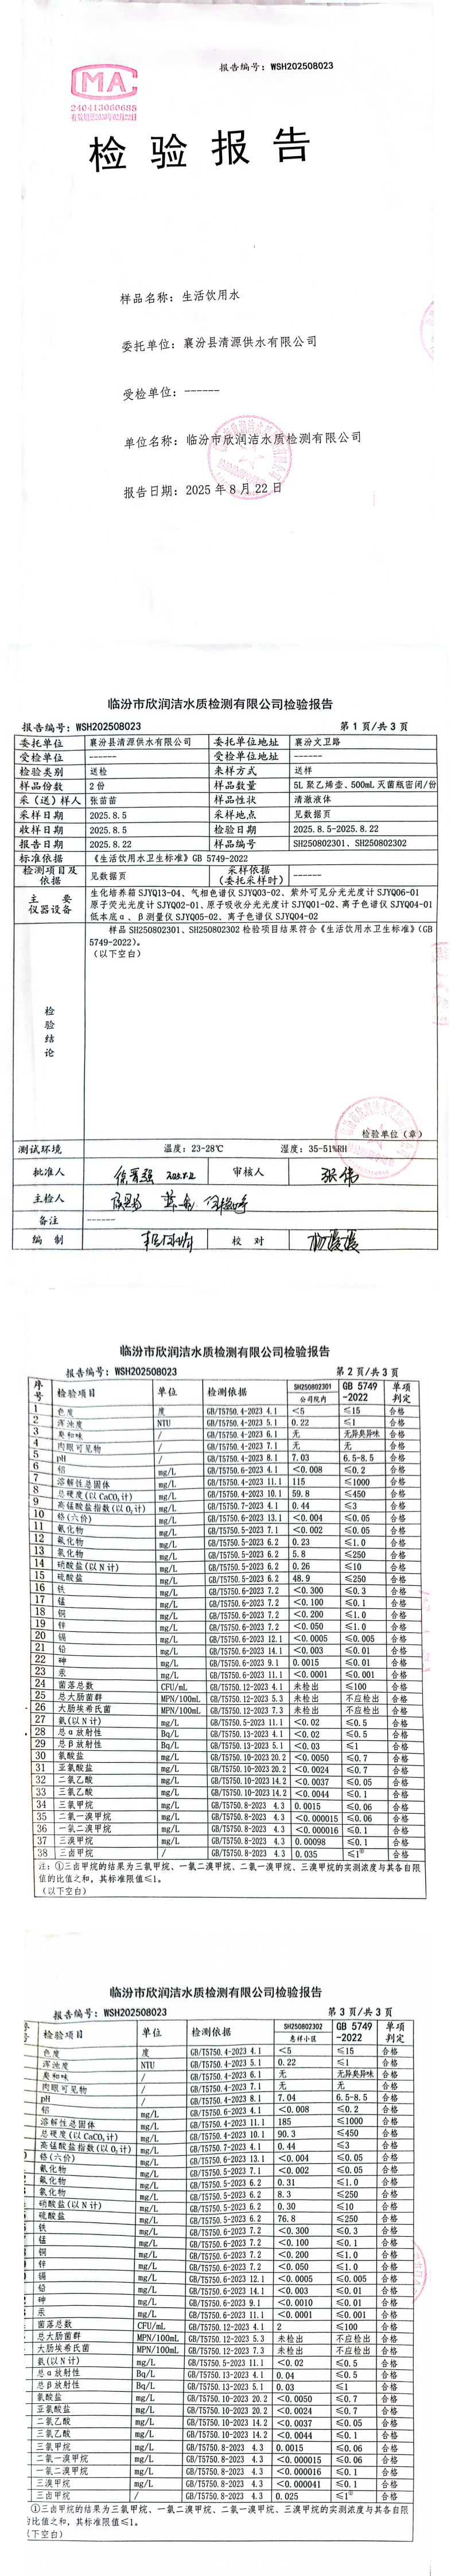 报告编号：WSH202508023
MA
240413060685
检验报告
样品名称：生活饮用水
委托单位：襄汾县清源供水有限公司
受检单位：------
单位名称：临汾市欣润洁水质检测有限公司
报告日期：2025年8月22日
临汾市欣润洁水质检测有限公司检验报告
报告编号：WSH202508023 第1页/共3页
委托单位 襄汾县清源供水有限公司 委托单位地址 襄汾文卫路
受检单位 ------ 受检单位地址 ------
检验类别 送检 来样方式 送样
样品份数 2份 样品数量 5L聚乙烯壶、500mL灭菌瓶密闭/份
采（送）样人 张苗苗 样品性状 清澈液体
采样日期 2025.8.5 采样地点 见数据页
收样日期 2025.8.5 检验日期 2025.8.5-2025.8.22
报告日期 2025.8.22 样品编号 SH250802301、SH250802302
标准依据 《生活饮用水卫生标准》GB 5749-2022
检测项目及依据 见数据页 采样依据（委托采样时） ------
主要仪器设备 生化培养箱SJYQ13-04、气相色谱仪SJYQ03-02、紫外可见分光光度计SJYQ06-01
原子荧光光度计SJYQ02-01、原子吸收分光光度计SJYQ01-02、离子色谱仪SJYQ04-01
低本底α、β测量仪SJYQ05-02、离子色谱仪SJYQ04-02
检验结论 样品SH250802301、SH250802302检验项目结果符合《生活饮用水卫生标准》（GB
5749-2022）。
（以下空白）
检验单位（章）
测试环境 温度：23-28℃ 湿度：35-51%RH
批准人 审核人 张伟
主检人
备注 ------
编制 校对
临汾市欣润洁水质检测有限公司检验报告
报告编号：WSH202508023 第2页/共3页
序号 检验项目 单位 检测依据 SH250802301 公司院内 GB 5749-2022 单项判定
1 色度 度 GB/T5750.4-2023 4.1 <5 ≤15 合格
2 浑浊度 NTU GB/T5750.4-2023 5.1 0.22 ≤1 合格
3 臭和味 / GB/T5750.4-2023 6.1 无 无异臭异味 合格
4 肉眼可见物 / GB/T5750.4-2023 7.1 无 无 合格
5 pH / GB/T5750.4-2023 8.1 7.03 6.5-8.5 合格
6 铝 mg/L GB/T5750.6-2023 4.1 <0.008 ≤0.2 合格
7 溶解性总固体 mg/L GB/T5750.4-2023 11.1 115 ≤1000 合格
8 总硬度(以CaCO₃计) mg/L GB/T5750.4-2023 10.1 59.8 ≤450 合格
9 高锰酸盐指数(以O₂计) mg/L GB/T5750.7-2023 4.1 0.44 ≤3 合格
10 铬(六价) mg/L GB/T5750.6-2023 13.1 <0.004 ≤0.05 合格
11 氰化物 mg/L GB/T5750.5-2023 7.1 <0.002 ≤0.05 合格
12 氟化物 mg/L GB/T5750.5-2023 6.2 0.23 ≤1.0 合格
13 氯化物 mg/L GB/T5750.5-2023 6.2 5.8 ≤250 合格
14 硝酸盐(以N计) mg/L GB/T5750.5-2023 6.2 0.26 ≤10 合格
15 硫酸盐 mg/L GB/T5750.5-2023 6.2 48.9 ≤250 合格
16 铁 mg/L GB/T5750.6-2023 7.2 <0.300 ≤0.3 合格
17 锰 mg/L GB/T5750.6-2023 7.2 <0.100 ≤0.1 合格
18 铜 mg/L GB/T5750.6-2023 7.2 <0.200 ≤1.0 合格
19 锌 mg/L GB/T5750.6-2023 7.2 <0.050 ≤1.0 合格
20 镉 mg/L GB/T5750.6-2023 12.1 <0.0005 ≤0.005 合格
21 铅 mg/L GB/T5750.6-2023 14.1 <0.003 ≤0.01 合格
22 砷 mg/L GB/T5750.6-2023 9.1 0.0015 ≤0.01 合格
23 汞 mg/L GB/T5750.6-2023 11.1 <0.0001 ≤0.001 合格
24 菌落总数 CFU/mL GB/T5750.12-2023 4.1 未检出 ≤100 合格
25 总大肠菌群 MPN/100mL GB/T5750.12-2023 5.3 未检出 不应检出 合格
26 大肠埃希氏菌 MPN/100mL GB/T5750.12-2023 7.3 未检出 不应检出 合格
27 氨(以N计) mg/L GB/T5750.5-2023 11.1 <0.02 ≤0.5 合格
28 总α放射性 Bq/L GB/T5750.13-2023 4.1 <0.02 ≤0.5 合格
29 总β放射性 Bq/L GB/T5750.13-2023 5.1 <0.03 ≤1 合格
30 氯酸盐 mg/L GB/T5750.10-2023 20.2 <0.0050 ≤0.7 合格
31 亚氯酸盐 mg/L GB/T5750.10-2023 20.2 <0.0024 ≤0.7 合格
32 二氯乙酸 mg/L GB/T5750.10-2023 14.2 <0.0037 ≤0.05 合格
33 三氯乙酸 mg/L GB/T5750.10-2023 14.2 <0.0044 ≤0.1 合格
34 三氯甲烷 mg/L GB/T5750.8-2023 4.3 0.0015 ≤0.06 合格
35 二氯一溴甲烷 mg/L GB/T5750.8-2023 4.3 <0.000015 ≤0.06 合格
36 一氯二溴甲烷 mg/L GB/T5750.8-2023 4.3 <0.000016 ≤0.1 合格
37 三溴甲烷 mg/L GB/T5750.8-2023 4.3 0.00098 ≤0.1 合格
38 三卤甲烷 / GB/T5750.8-2023 4.3 0.035 ≤1① 合格
注：①三卤甲烷的结果为三氯甲烷、一氯二溴甲烷、二氯一溴甲烷、三溴甲烷的实测浓度与其各自限
值的比值之和，其标准限值≤1。
（以下空白）
临汾市欣润洁水质检测有限公司检验报告
报告编号：WSH202508023 第3页/共3页
号 检验项目 单位 检测依据 SH250802302 GB 5749-2022 单项判定
色度 度 GB/T5750.4-2023 4.1 <5 ≤15 合格
浑浊度 NTU GB/T5750.4-2023 5.1 0.22 ≤1 合格
臭和味 / GB/T5750.4-2023 6.1 无 无异臭异味 合格
肉眼可见物 / GB/T5750.4-2023 7.1 无 无 合格
pH / GB/T5750.4-2023 8.1 7.04 6.5-8.5 合格
铝 mg/L GB/T5750.6-2023 4.1 <0.008 ≤0.2 合格
溶解性总固体 mg/L GB/T5750.4-2023 11.1 185 ≤1000 合格
总硬度(以CaCO₃计) mg/L GB/T5750.4-2023 10.1 90.3 ≤450 合格
高锰酸盐指数(以O₂计) mg/L GB/T5750.7-2023 4.1 0.44 ≤3 合格
铬(六价) mg/L GB/T5750.6-2023 13.1 <0.004 ≤0.05 合格
氰化物 mg/L GB/T5750.5-2023 7.1 <0.002 ≤0.05 合格
氟化物 mg/L GB/T5750.5-2023 6.2 0.31 ≤1.0 合格
氯化物 mg/L GB/T5750.5-2023 6.2 8.3 ≤250 合格
硝酸盐(以N计) mg/L GB/T5750.5-2023 6.2 0.30 ≤10 合格
硫酸盐 mg/L GB/T5750.5-2023 6.2 76.8 ≤250 合格
铁 mg/L GB/T5750.6-2023 7.2 <0.300 ≤0.3 合格
锰 mg/L GB/T5750.6-2023 7.2 <0.100 ≤0.1 合格
铜 mg/L GB/T5750.6-2023 7.2 <0.200 ≤1.0 合格
锌 mg/L GB/T5750.6-2023 7.2 <0.050 ≤1.0 合格
镉 mg/L GB/T5750.6-2023 12.1 <0.0005 ≤0.005 合格
铅 mg/L GB/T5750.6-2023 14.1 <0.003 ≤0.01 合格
砷 mg/L GB/T5750.6-2023 9.1 <0.0010 ≤0.01 合格
汞 mg/L GB/T5750.6-2023 11.1 <0.0001 ≤0.001 合格
菌落总数 CFU/mL GB/T5750.12-2023 4.1 2 ≤100 合格
总大肠菌群 MPN/100mL GB/T5750.12-2023 5.3 未检出 不应检出 合格
大肠埃希氏菌 MPN/100mL GB/T5750.12-2023 7.3 未检出 不应检出 合格
氨(以N计) mg/L GB/T5750.5-2023 11.1 <0.02 ≤0.5 合格
总α放射性 Bq/L GB/T5750.13-2023 4.1 0.04 ≤0.5 合格
总β放射性 Bq/L GB/T5750.13-2023 5.1 0.03 ≤1 合格
氯酸盐 mg/L GB/T5750.10-2023 20.2 <0.0050 ≤0.7 合格
亚氯酸盐 mg/L GB/T5750.10-2023 20.2 <0.0024 ≤0.7 合格
二氯乙酸 mg/L GB/T5750.10-2023 14.2 <0.0037 ≤0.05 合格
三氯乙酸 mg/L GB/T5750.10-2023 14.2 <0.0044 ≤0.1 合格
三氯甲烷 mg/L GB/T5750.8-2023 4.3 0.0015 ≤0.06 合格
二氯一溴甲烷 mg/L GB/T5750.8-2023 4.3 <0.000015 ≤0.06 合格
一氯二溴甲烷 mg/L GB/T5750.8-2023 4.3 <0.000016 ≤0.1 合格
三溴甲烷 mg/L GB/T5750.8-2023 4.3 <0.000041 ≤0.1 合格
三卤甲烷 / GB/T5750.8-2023 4.3 0.025 ≤1① 合格
①三卤甲烷的结果为三氯甲烷、一氯二溴甲烷、二氯一溴甲烷、三溴甲烷的实测浓度与其各自限
的比值之和，其标准限值≤1。
下空白）